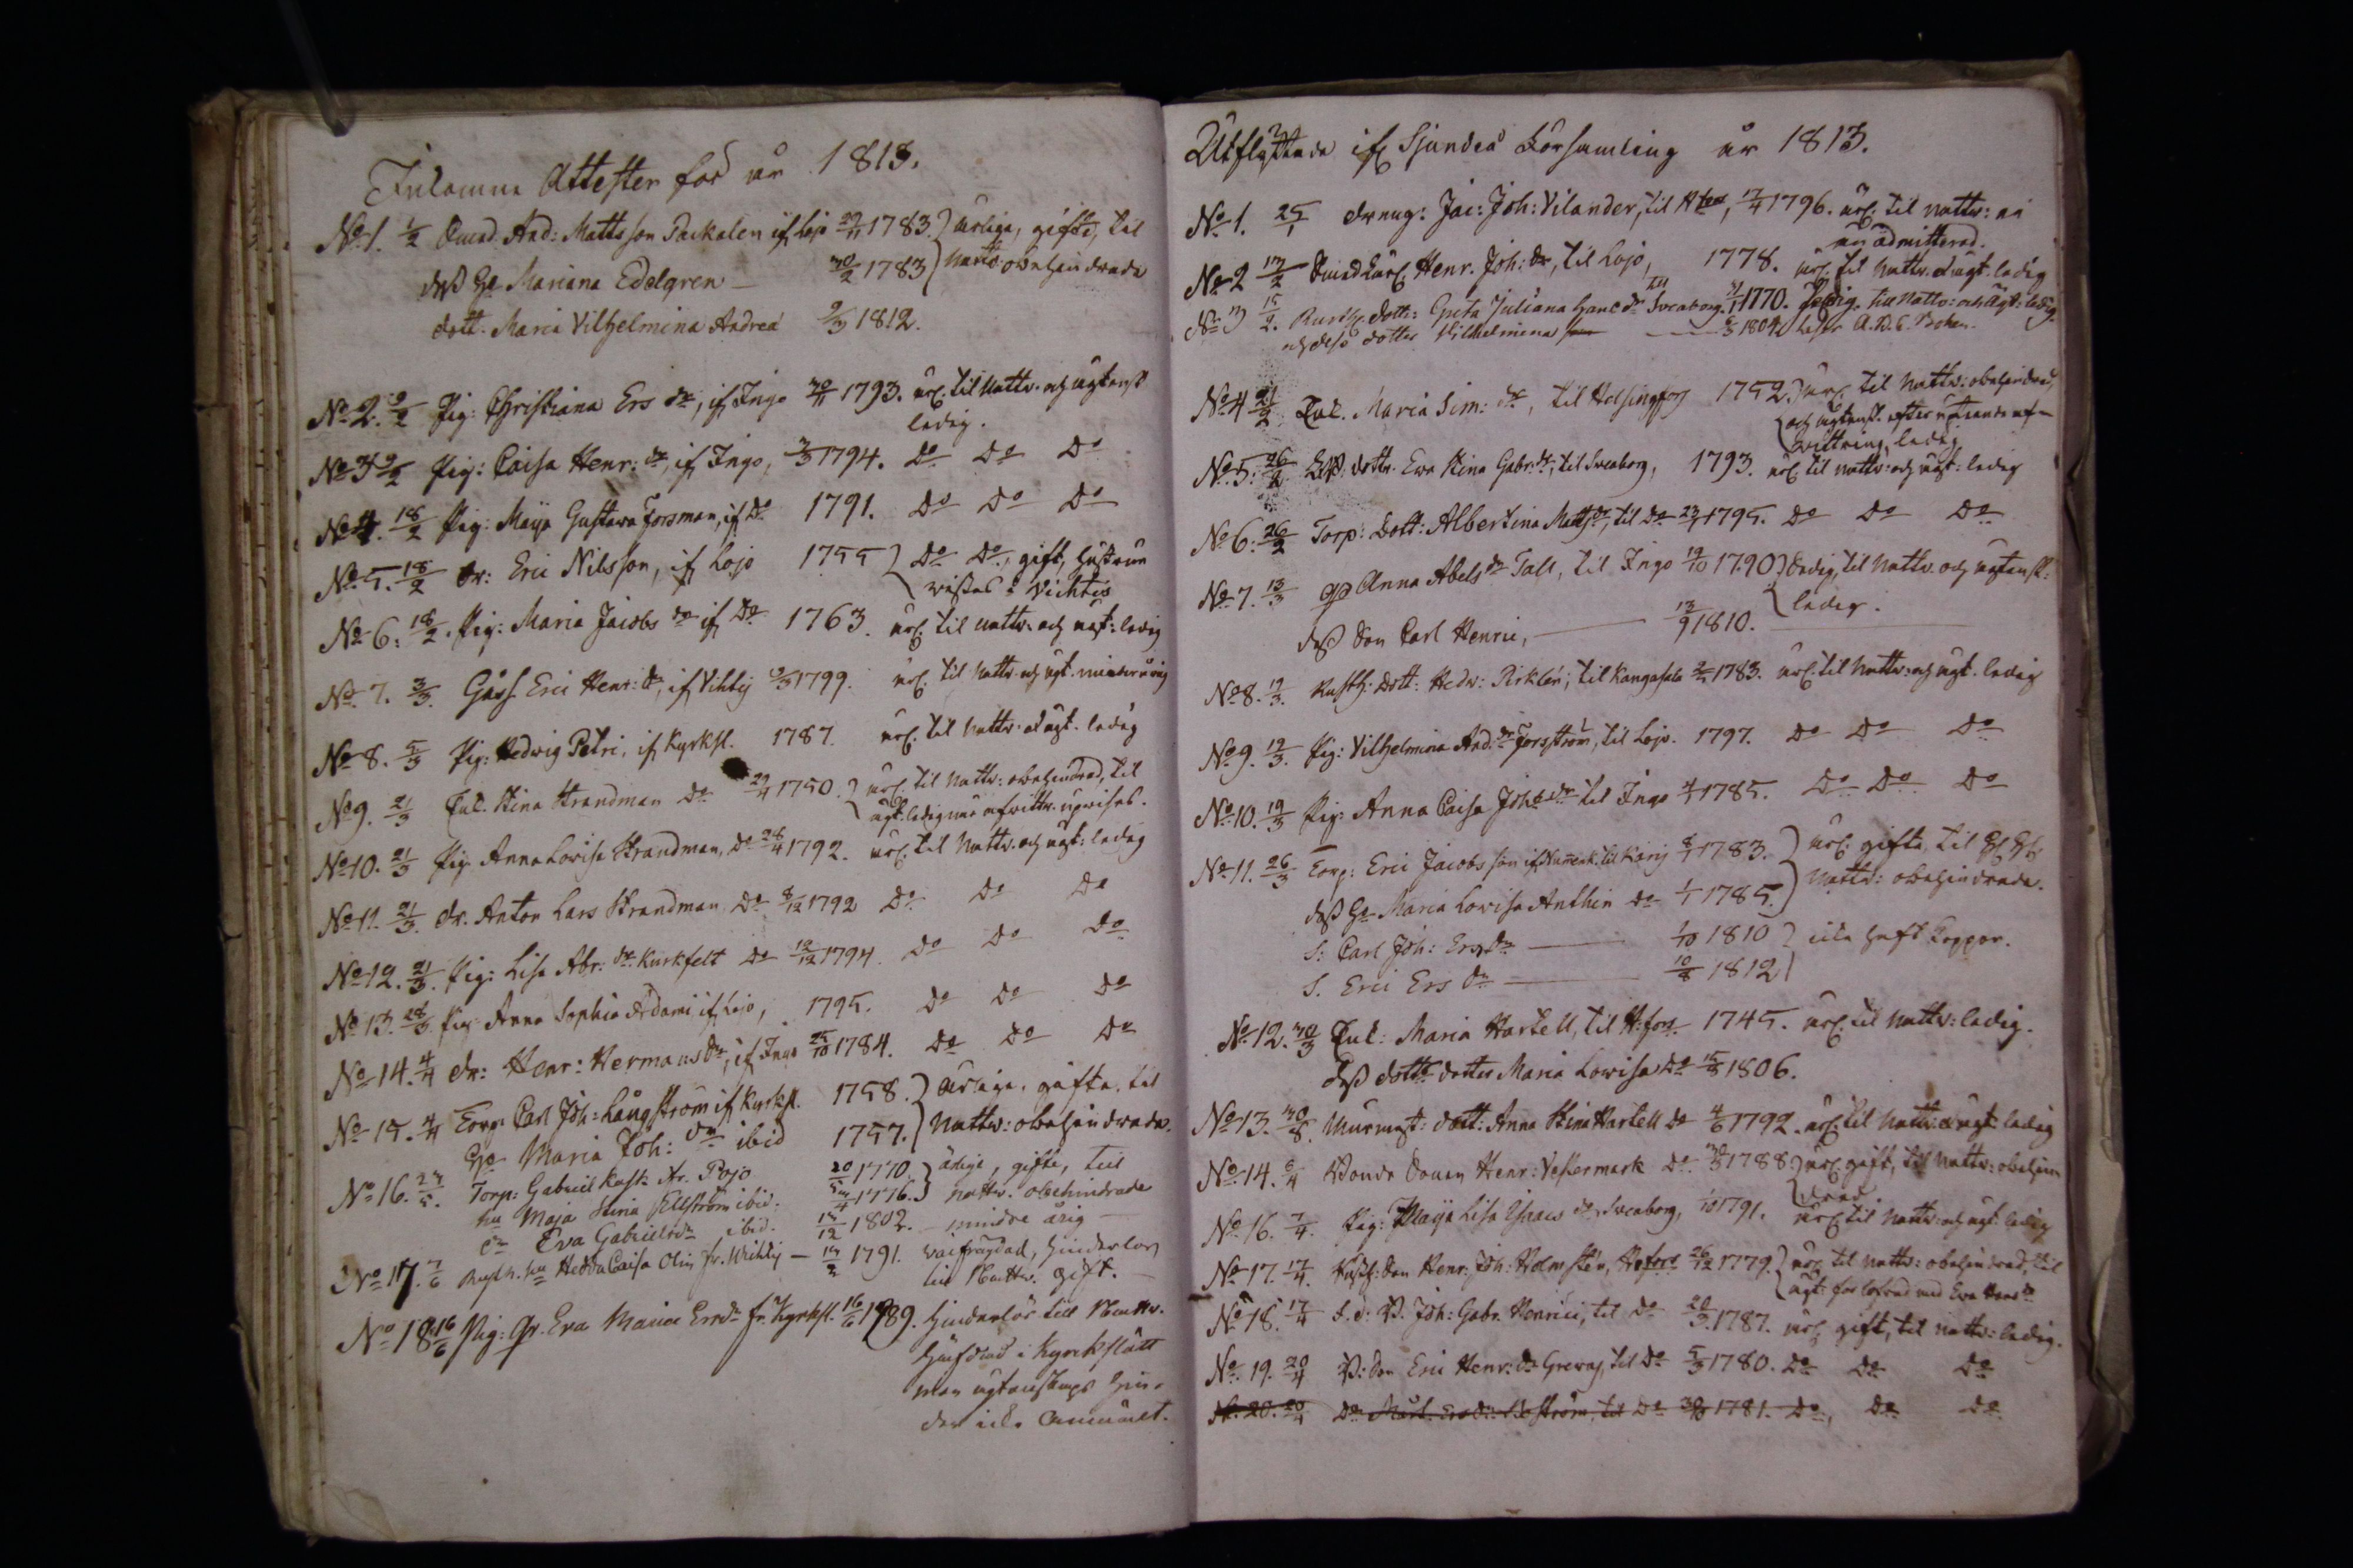 Inkomne Attester för år 1813.
No 1. 1/2 And: Mattsson Packalen if. Lojo 29/11 1783. } ärlige, gifte, til
dess Ho Mariana Edelgren — 30/2 1783 } Nattv: obehindrade
dott. Maria Vilhelmina Andreæ 9/3 1812.
No 2. 9/2 Pig: Christiana Ers dr, if. Ingo 30/11 1793. ärl. til Nattv. och ägtensk
ledig.
No 3 9/2 Pig: Caisa Henr: dr, if. Ingo, 1794. Do Do Do
No 4. 18/2 Pig: Maja Gustava Forsman, if. Do 1791. Do Do Do
No 5. 18/2 Dr: Eric Nilsson, if. Lojo 1755 } Do Do, gift, hustrun
vistas i Vichtis
No 6: 18/2. Pig: Maria Jacobs dr if. Do 1763. ärl. til nattv. och ägt: ledig
No 7. 3/3. Goss. Eric Henr: dr, if. Vihtij 1799. ärl. til Nattv. och ägt. minderårig
No 8. 5/3 Pig: Hedwig Petri, if. Kyrksl. 1787. ärl. til Nattv. & ägt. ledig
No 9. 21/3 Enk. Stina Strandman Do 29/4 1750. } ärl. til Nattv: obehindrad, til
ägt. ledig när afvittr. upvises.
No 10. 21/3 Pig. Anna Lovisa Strandman, Do 28/4 1792. ärl. til Nattv. och ägt: ledig
No 11. 21/3. Dr. Anton Lars Strandman Do 8/12 1792 Do Do Do
No 12. 21/3. Pig: Lisa Abr: dr Kurkfelt Do 12/12 1794. Do Do Do
No 13. 28/3. Pig: Anna Sophia Adami, if. Lojo, 1795. Do Do Do
No 14. 4/4 Dr: Henr: Hermans dr, if. Ingo 25/10 1784. Do Do Do
No 15. 4/4 Torp. Carl Joh: Långström if. Kyrksl. 1758. } Ärlige, gifte, til
Ho Maria Joh: dr ibid 1757. } Nattv: obehindrade.
No 16. Torp: Gabriel Kask fr. Pojo 20/ 1770. } ärlige, gifte, till
hu Maja Stina Sellström ibid: 1776. } nattv. obehindrade
dr Eva Gabrielsdr ibid. /12 1802. — mindre årig —
No 17. 7/6 Rusth. hu Hedda Caisa Olin fr. Wichtij — 1791. väl frägdad, hinderlös
till Nattv. gift. —
No 18 16/6 Pig: Eva Maria Ersdr fr. Kyrksl. 16/6 1789. Hinderlös till Nattv.
i Kyrkslätt
men ägtenskaps hin-
der icke anmält.
Utflyttade if. Sjundeå Församling år 1813.
No 1. 25/1 Dreng: Jac: Joh: Vilander, til H:fors, 17/4 1796. ärl: til nattv: ei
än admitterad.
No 2 13/2 Henr. Joh: dr, til Lojo, 1778. ärl. til Nattv. & ägt. ledig
No 3 15/2. Rusth. dotter Greta Juliana Hans dr till Sveaborg 1770. ledig till Nattv: och ägt: ledig
och dess dotter Vilhelmina — 6/3 1804. läser A.B.C. Boken.
No 4 21/2 Enk. Maria Sim: dr, til Helsingfors 1752. } ärl. til Nattv: obehindrad,
och ägtensk. efter af-
wittring ledig
No 5. 26/2 dotter. Ewa Stina Gabr. dr, til Sveaborg, 1793. ärl til nattv: och ägt: ledig
No 6. 26/2 Torp: Dott: Albertina Matts dr, til Do 23/ 1795. Do Do Do
No 7. 13/3 Anna Abels dr Tall, til Ingo 19/10 1790 } ledig, til Nattv. och ägtensk:
ledig.
dess Son Carl Henric, — 13/9 1810.
No 8. 19/3. Rusth: Dott: Hedv: Pirklén, til Kangasala 1783. ärl. til Nattv: och ägt. ledig
No 9. 19/3. Pig: Vilhelmina And. dr Forsström, til Lojo. 1797. Do Do Do
No 10. 19/3 Pig: Anna Caisa Joh: dr til Ingo 4/ 1785. Do Do Do
No 11. 26/3 Torp: Eric Jacobsson til Karis 8/ 1783. } ärl: gifte, til
dess Ho Maria Lovisa Anthin Do 1/ 1785. } Nattv: obehindrade.
S: Carl Joh: Ers dr — 1/10 1810 } icke haft koppor.
S. Eric Ers dr — 10/8 1812 }
No 12. 30/3 Enk: Maria Hartell, til H:fors 1745. ärl. til Nattv: ledig.
dess dotter dotter Maria Lovisa Do 15/ 1806.
No 13. 30/8. Murmest: dott: Anna Stina Hartell Do 4/6 1792. ärl: til Nattv: & ägt. ledig
No 14. 6/4 Bonde Sonen Henr: Vestermark Do. 1788. } ärl. gift, til Nattv: obehin
drad
No 16. 7/4. Pig: Maija Lisa Isacs dr, Sveaborg, 1/10 1791. ärl. til Nattv: och ägt. ledig
No 17. 17/4. Rusth: Son Henr: Joh: Holmstén, H:fors 26/12 1779. } ärl. til nattv: obehindrad, til
ägt: förlofvad med Eva Hans dr
No 18. 17/4 Joh: Gabr. Henrici, til Do 20/ 1787. ärl. gift, til nattv: ledig.
No. 19. 20/4 B: Son Eric Henr: dr Grewas, til Do 5/3 1780. Do Do Do
No. 20. 20/4 til Do 1781. Do, Do Do